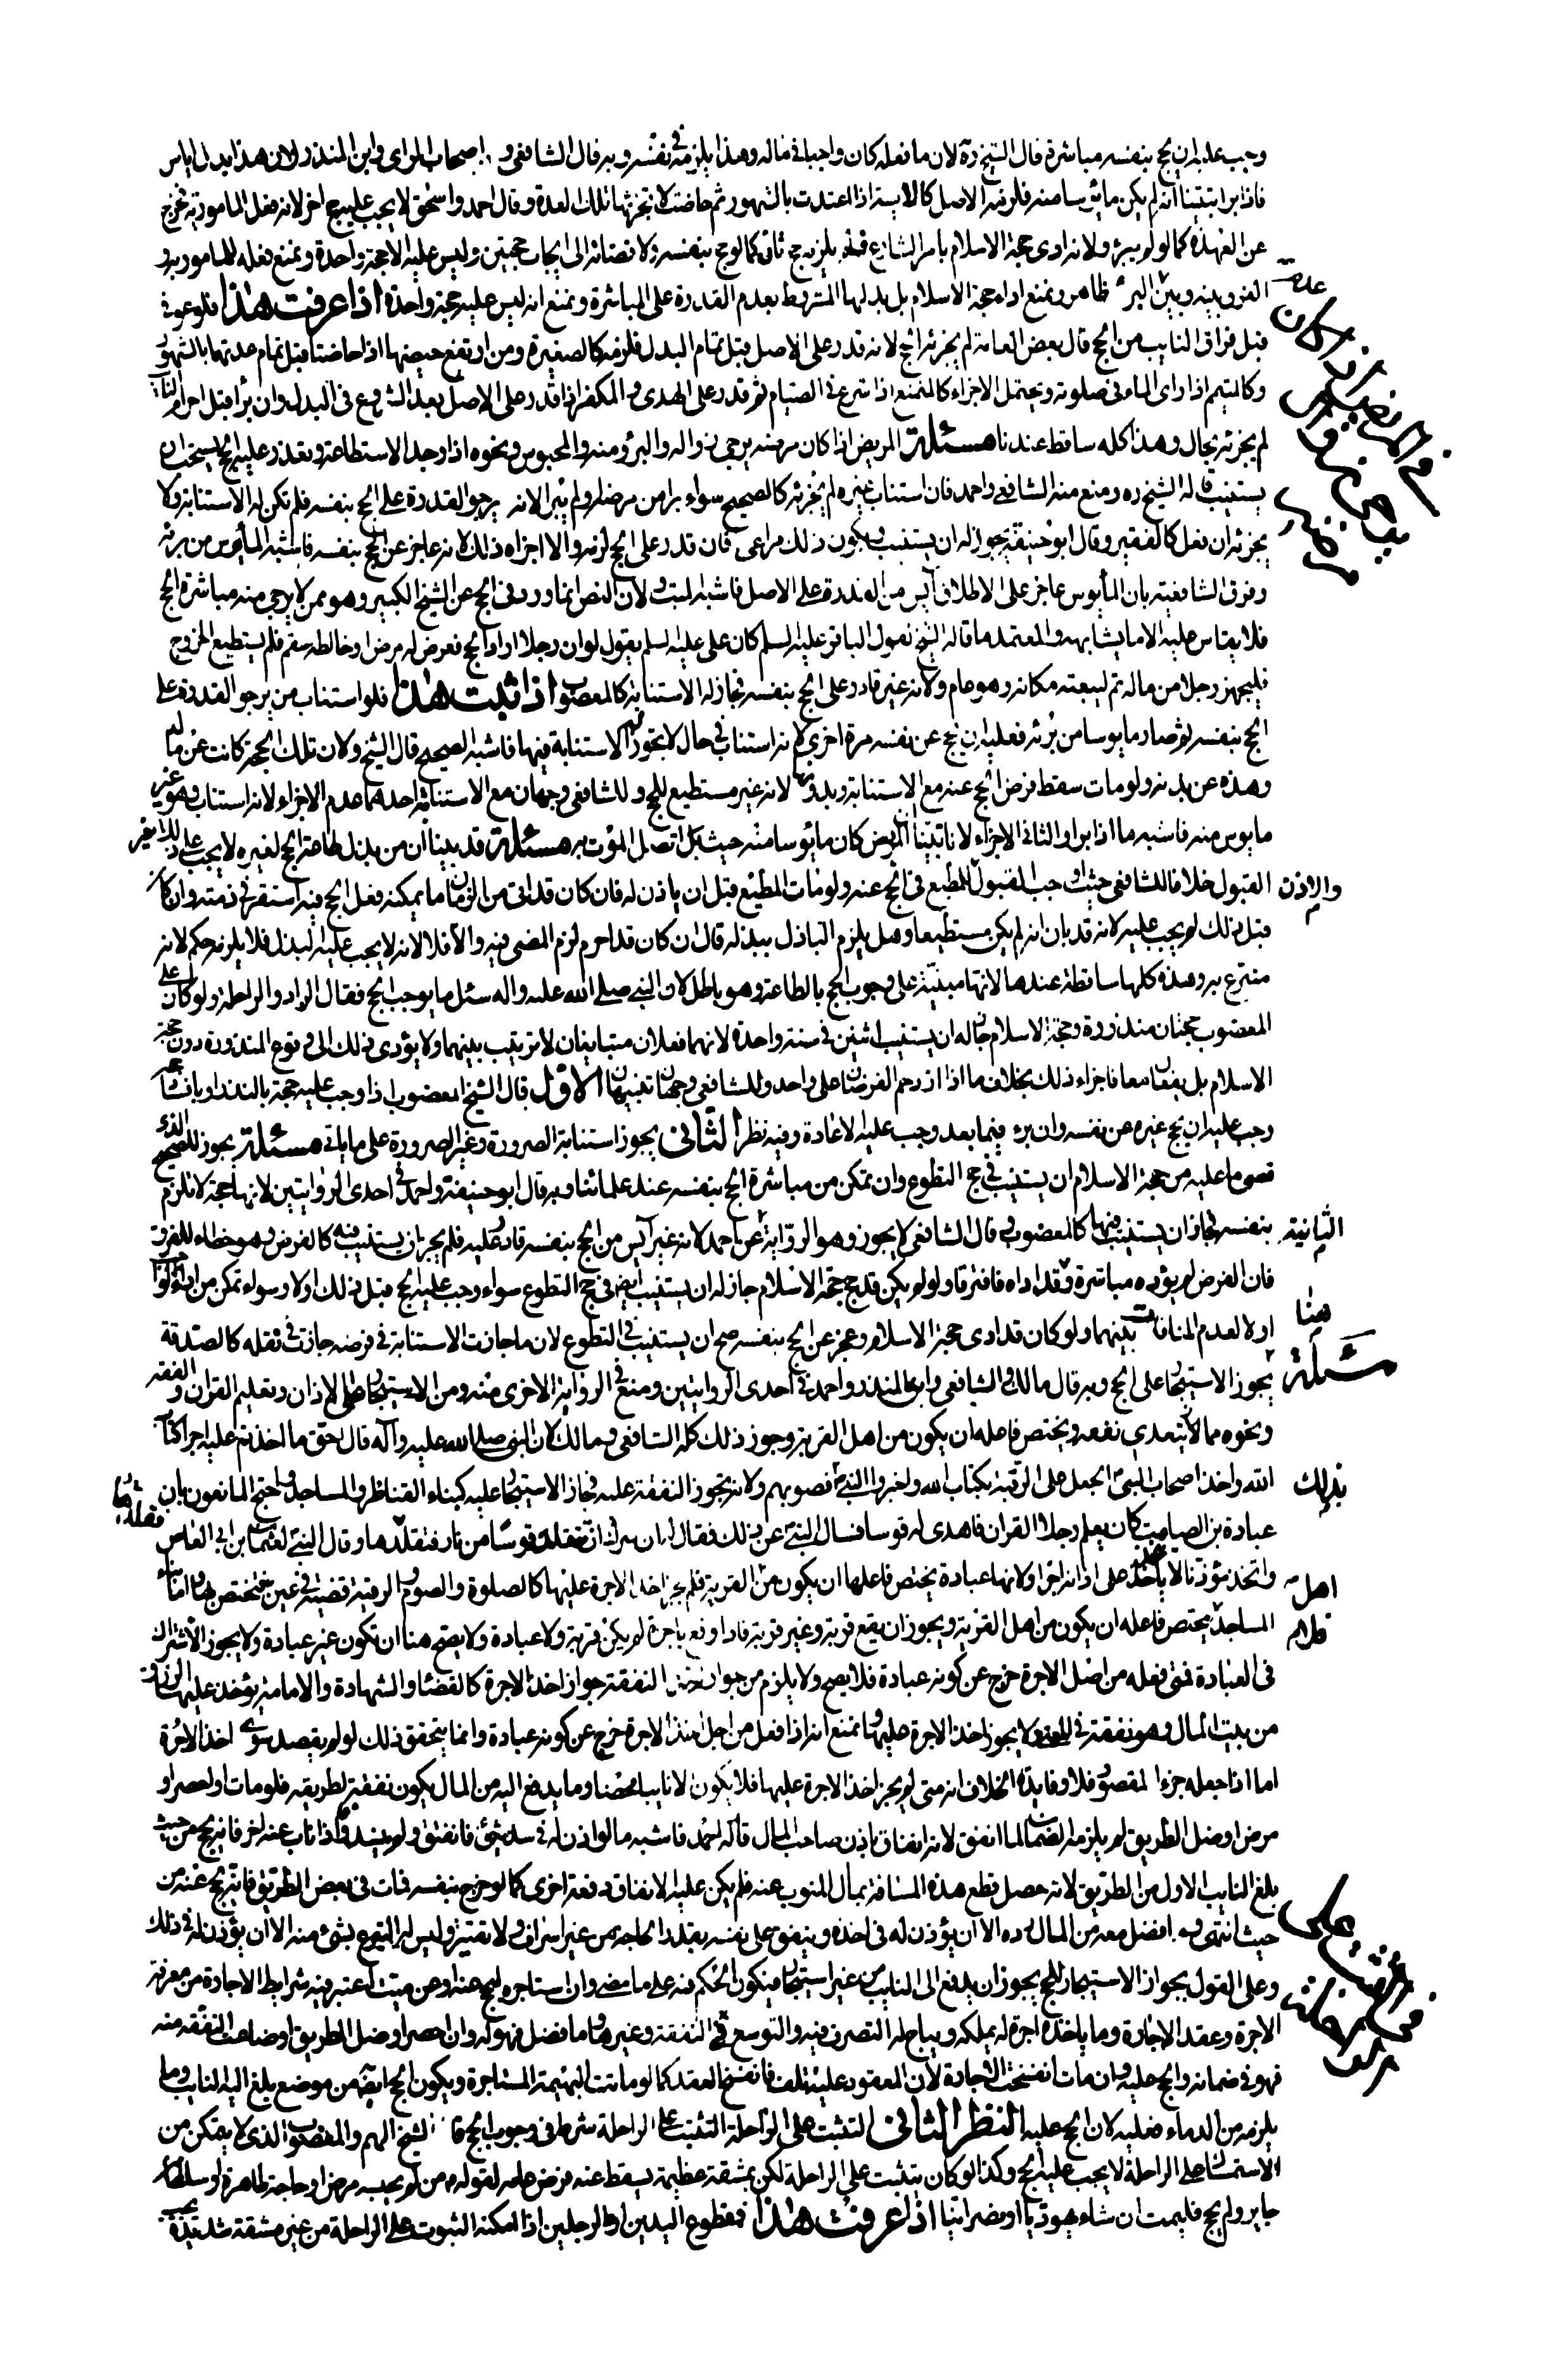 وجب عليه ان يحج بنفسه مباشرة قال الشيخ ره لان ما فعله كان واجبا في ماله وهذا يلزمه في نفسه وبه قال الشافعي و اصحاب الراى وابن المنذر ولان هذا بدل اياس
فاذا برا تبيّنا انه لم يكن مأيوسا منه فلزمه الاصل كالايسة اذا اعتدت بالشهور ثم حاضت لا تجزئها تلك العدة وقال احمد واسحق لا يجب عليه حج اخر لانه فعل المامور به فخرج
عن العهدة كما لو لم يبرء ولانه ادى حجة الاسلام بامر الشارع فلم يلزمه حج ثان كما لو حج بنفسه ولافضائه الى ايجاب حجتين وليس عليه الا حجة واحدة ونمنع فعله للمامور به و
الفرق بينه وبين البرء ظاهر ونمنع اداء حجة الاسلام بل بدلها المشروط بعدم القدرة على المباشرة ونمنع انه ليس عليه حجة واحدة اذا عرفت هذا فلو عوفي
قبل فراق النايب من الحج قال بعض العامة لم يجزئه الحج لانه قدر على الاصل قبل تمام البدل فلزمه كالصغيرة ومن ارتفع حيضها اذا حاضتا قبل تمام عدتهما بالشهور
وكالمتيمم اذا راى الماء في صلوته ويحتمل الاجزاء كالمتمتع اذا شرع في الصيام ثم قدر على الهدى والمكفر اذا قدر على الاصل بعد الشروع في البدل وان برا قبل احرام النايب
لم يجزئه بحال وهذا كله ساقط عندنا مسئلة المريض اذا كان مرضه يرجى زواله والبرؤ منه والمحبوس ونحوه اذا وجد الاستطاعة وتعذر عليه الحج يستحب ان
يستنيب قاله الشيخ ره ومنع منه الشافعي واحمد فان استناب غيره لم يجزئه كالصحيح سواء برا من مرضه او لم يبرا لانه يرجو القدرة على الحج بنفسه فلم تكن له الاستنابة ولا
يجزئه ان فعل كالفقير وقال ابو حنيفة يجوز له ان يستنيب ويكون ذلك مراعى فان قدر على الحج لزمه والا اجزاه ذلك لانه عاجز عن الحج بنفسه فاشبه المأيوس من برئه
وفرق الشافعية بان المأيوس عاجز على الاطلاق آيس من القدرة على الاصل فاشبه الميت ولان النص انما ورد في الحج عن الشيخ الكبير وهو ممن لا يرجى منه مباشرة الحج
فلا يقاس عليه الا ما يشابهه والمعتمد ما قاله الشيخ لقول الباقر عليه السلم كان على عليه السلم يقول لو ان رجلا اراد الحج فعرض له مرض او خالطه سقم فلم يستطع الخروج
فليجهز رجلا من ماله ثم ليبعثه مكانه وهو عام ولانه غير قادر على الحج بنفسه فجاز له الاستنابة كالمعضوب اذا ثبت هذا فلو استناب من يرجو القدرة على
الحج بنفسه ثم صار مأيوسا من برئه فعليه ان يحج عن نفسه مرة اخرى لانه استناب في حال لا تجوز له الاستنابة فيها فاشبه الصحيح قال الشيخ ولان تلك الحجة كانت عن ماله
وهذه عن بدنه ولو مات سقط فرض الحج عنه مع الاستنابة وبدونها لانه غير مستطيع للحج وللشافعي وجهان مع الاستنابة احدهما عدم الاجزاء لانه استناب وهو غير
مايوس منه فاشبه ما اذا برا والثاني الاجزاء لانا تبيّنا ان المرض كان مايوسا منه حيث اتصل الموت به مسئلة قد بينا ان من بذل طاعة الحج لغيره لا يجب على ذلك الغير
القبول خلافا للشافعي حيث اوجب القبول للمطيع في الحج عنه ولو مات المطيع قبل ان ياذن له فان كان قد اتى من الزمان ما يمكنه فعل الحج فيه استقر في ذمته وان كان
قبل ذلك لم يجب عليه لانه قد بان انه لم يكن مستطيعا وهل يلزم الباذل ببذله قال ان كان قد احرم لزم المضى فيه والا فلا لانه لا يجب عليه البذل فلا يلزمه حكم لانه
متبرع به وهذه كلها ساقطة عندها لانها مبنيّة على وجوب الحج بالطاعة وهو باطل لان النبي صلى الله عليه واله سئل ما يوجب الحج فقال الزاد والراحلة ولو كان على
المعضوب حجتان منذورة وحجة الاسلام جاز له ان يستنيب اثنين في سنة واحدة لانهما فعلان متباينان لا ترتيب بينهما ولا يؤدى ذلك الى وقوع المنذورة دون حجة
الاسلام بل يقعان معا فاجزاء ذلك بخلاف ما اذا ازدحم الفرضان على واحد وللشافعي وجهان تنبيهان الاوّل قال الشيخ المعضوب اذا وجب عليه حجة بالنذر او بافساد حجه
وجب عليه ان يحج غيره عن نفسه وان برء فيما بعد وجب عليه الاعادة وفيه نظر الثاني يجوز استنابة الصرورة وغير الصرورة على ما ياتي مسئلة يجوز للصحيح الذي
قضى ما عليه من حجة الاسلام ان يستنيب في حج التطوع وان تمكن من مباشرة الحج بنفسه عند علمائنا وبه قال ابو حنيفة واحمد في احدى الروايتين لانها حجة لا تلزم
بنفسه فجاز ان يستنيب فيها كالمعضوب وقال الشافعي لا يجوز وهو الرواية الثانية عن احمد لانه غير آيس من الحج بنفسه قادر عليه فلم يجز ان يستنيب فيه كالفرض وهو خطاء للفرق
فان الفرض لم يؤده مباشرة وقد اداه فافترقا ولو لم يكن قد حج حجة الاسلام جاز له ان يستنيب ايض في حج التطوع سواء وجب عليه الحج قبل ذلك او لا وسواء تمكن من اداء الواجب
او لا لعدم المنافات بينهما ولو كان قد ادى حجة الاسلام وعجز عن الحج بنفسه صح ان يستنيب في التطوع لان ما جازت الاستنابة في فرضه جازت في نفله كالصدقة
مسئلة يجوز الاستيجار على الحج وبه قال مالك والشافعي وابن المنذر واحمد في احدى الروايتين ومنع في الرواية الاخرى منه ومن الاستيجار على الاذان وتعليم القران والفقه
ونحوه مما لا يتعدى نفعه ويختص فاعله ان يكون من اهل القربة وجوز ذلك كله الشافعي ومالك لان النبي صلى الله عليه وآله قال احق ما اخذتم عليه اجرا كتاب
الله واخذ اصحاب النبي الجعل على الرقية بكتاب الله واخبروا النبي بذلك فصوبهم ولانه يجوز النفقة عليه فجاز الاستيجار عليه كبناء القناطر والمساجد واحتج المانعون بان
عبادة بن الصامت كان يعلم رجلا القران فاهدى له قوسا فسال النبي عن ذلك فقال ان سرك ان تتقلد قوسا من نار فتقلّدها وقال النبي لعثمان بن ابي العاص
واتخذ مؤذنا لا ياخذ على اذانه اجرا ولانها عبادة يختص فاعلها ان يكون من اهل القربة فلم يجز اخذ الاجرة عليها كالصلوة والصوم والرقية قضية في عين فتختص بها واما بناء
المساجد فلا يختص فاعله ان يكون من اهل القربة ويجوز ان يقع قربة وغير قربة فاذا وقع باجرة لم يكن قربة ولا عبادة ولا يصح هنا ان تكون غير عبادة ولا يجوز الاشتراك
في العبادة فمتى فعله من اجل الاجرة خرج عن كونه عبادة فلا يصح ولا يلزم من جواز اخذ النفقة جواز اخذ الاجرة كالقضاء والشهادة والامامة يؤخذ عليها الرزق
من بيت المال وهو نفقة في المعنى ولا يجوز اخذ الاجرة عليها ونمنع انه اذا فعل من اجل اخذ الاجرة خرج عن كونه عبادة وانما يتحقق ذلك لو لم يقصد سوى اخذ الاجرة
اما اذا جعله جزءا لمقصود فلا وفايدة الخلاف انه متى لم يجز اخذ الاجرة عليها فلا يكون الا نايبا محضا وما يدفع اليه من المال يكون نفقة لطريقه فلو مات او احصر او
مرض او ضل الطريق لم يلزمه الضمان لما انفق لانه انفاق باذن صاحب المال قاله احمد فاشبه ما لو اذن له في سد بثق فانفتق ولم ينسد واذا ناب عنه اخر فانه يحج من حيث
بلغ النايب الاول من الطريق لانه حصل قطع هذه المسافة بمال المنوب عنه فلم يكن عليه الانفاق دفعة اخرى كما لو خرج بنفسه فمات في بعض الطريق فانه يحج عنه من
حيث انتهى وما فضل معه من المال رده الا ان يؤذن له في اخذه وينفق على نفسه بقدر الحاجة من غير اسراف ولا تقتير وليس له التبرع بشئ منه الا ان يؤذن له في ذلك
وعلى القول بجواز الاستيجار للحج يجوز ان يدفع الى النايب من غير استيجار فيكون الحكم فيه على ما مضى وان استاجره ليحج عنه او عن ميت اعتبر فيه شرايط الاجارة من معرفة
الاجرة وعقد الاجارة وما ياخذه اجرة له يملكه ويباح له التصرف فيه والتوسع في النفقة وغيرها وما فضل فهو له وان احصر او ضل الطريق او ضاعت النفقة منه
فهو في ضمانه والحج عليه وان مات انفسخت الاجارة لان المعقود عليه تلف فانفسخ العقد كما لو ماتت البهيمة المستاجرة ويكون الحج ايضا من موضع بلغ اليه النايب وما
يلزمه من الدماء فعليه لان الحج عليه النظر الثاني التثبت على الراحلة التثبت على الراحلة شرط في وجوب الحج فا الشيخ الهم والمعضوب الذى لا يتمكن من
الاستمساك على الراحلة لا يجب عليه الحج وكذا لو كان يتثبت على الراحلة لكن بمشقة عظيمة يسقط عنه فرض حجه لقوله من لم يحبسه مرض او حاجة ظاهرة او سلطان
جاير ولم يحج فليمت ان شاء يهوديا او نصرانيا اذا عرفت هذا فمقطوع اليدين او الرجلين اذا امكنه الثبوت على الراحلة من غير مشقة شديدة يجب